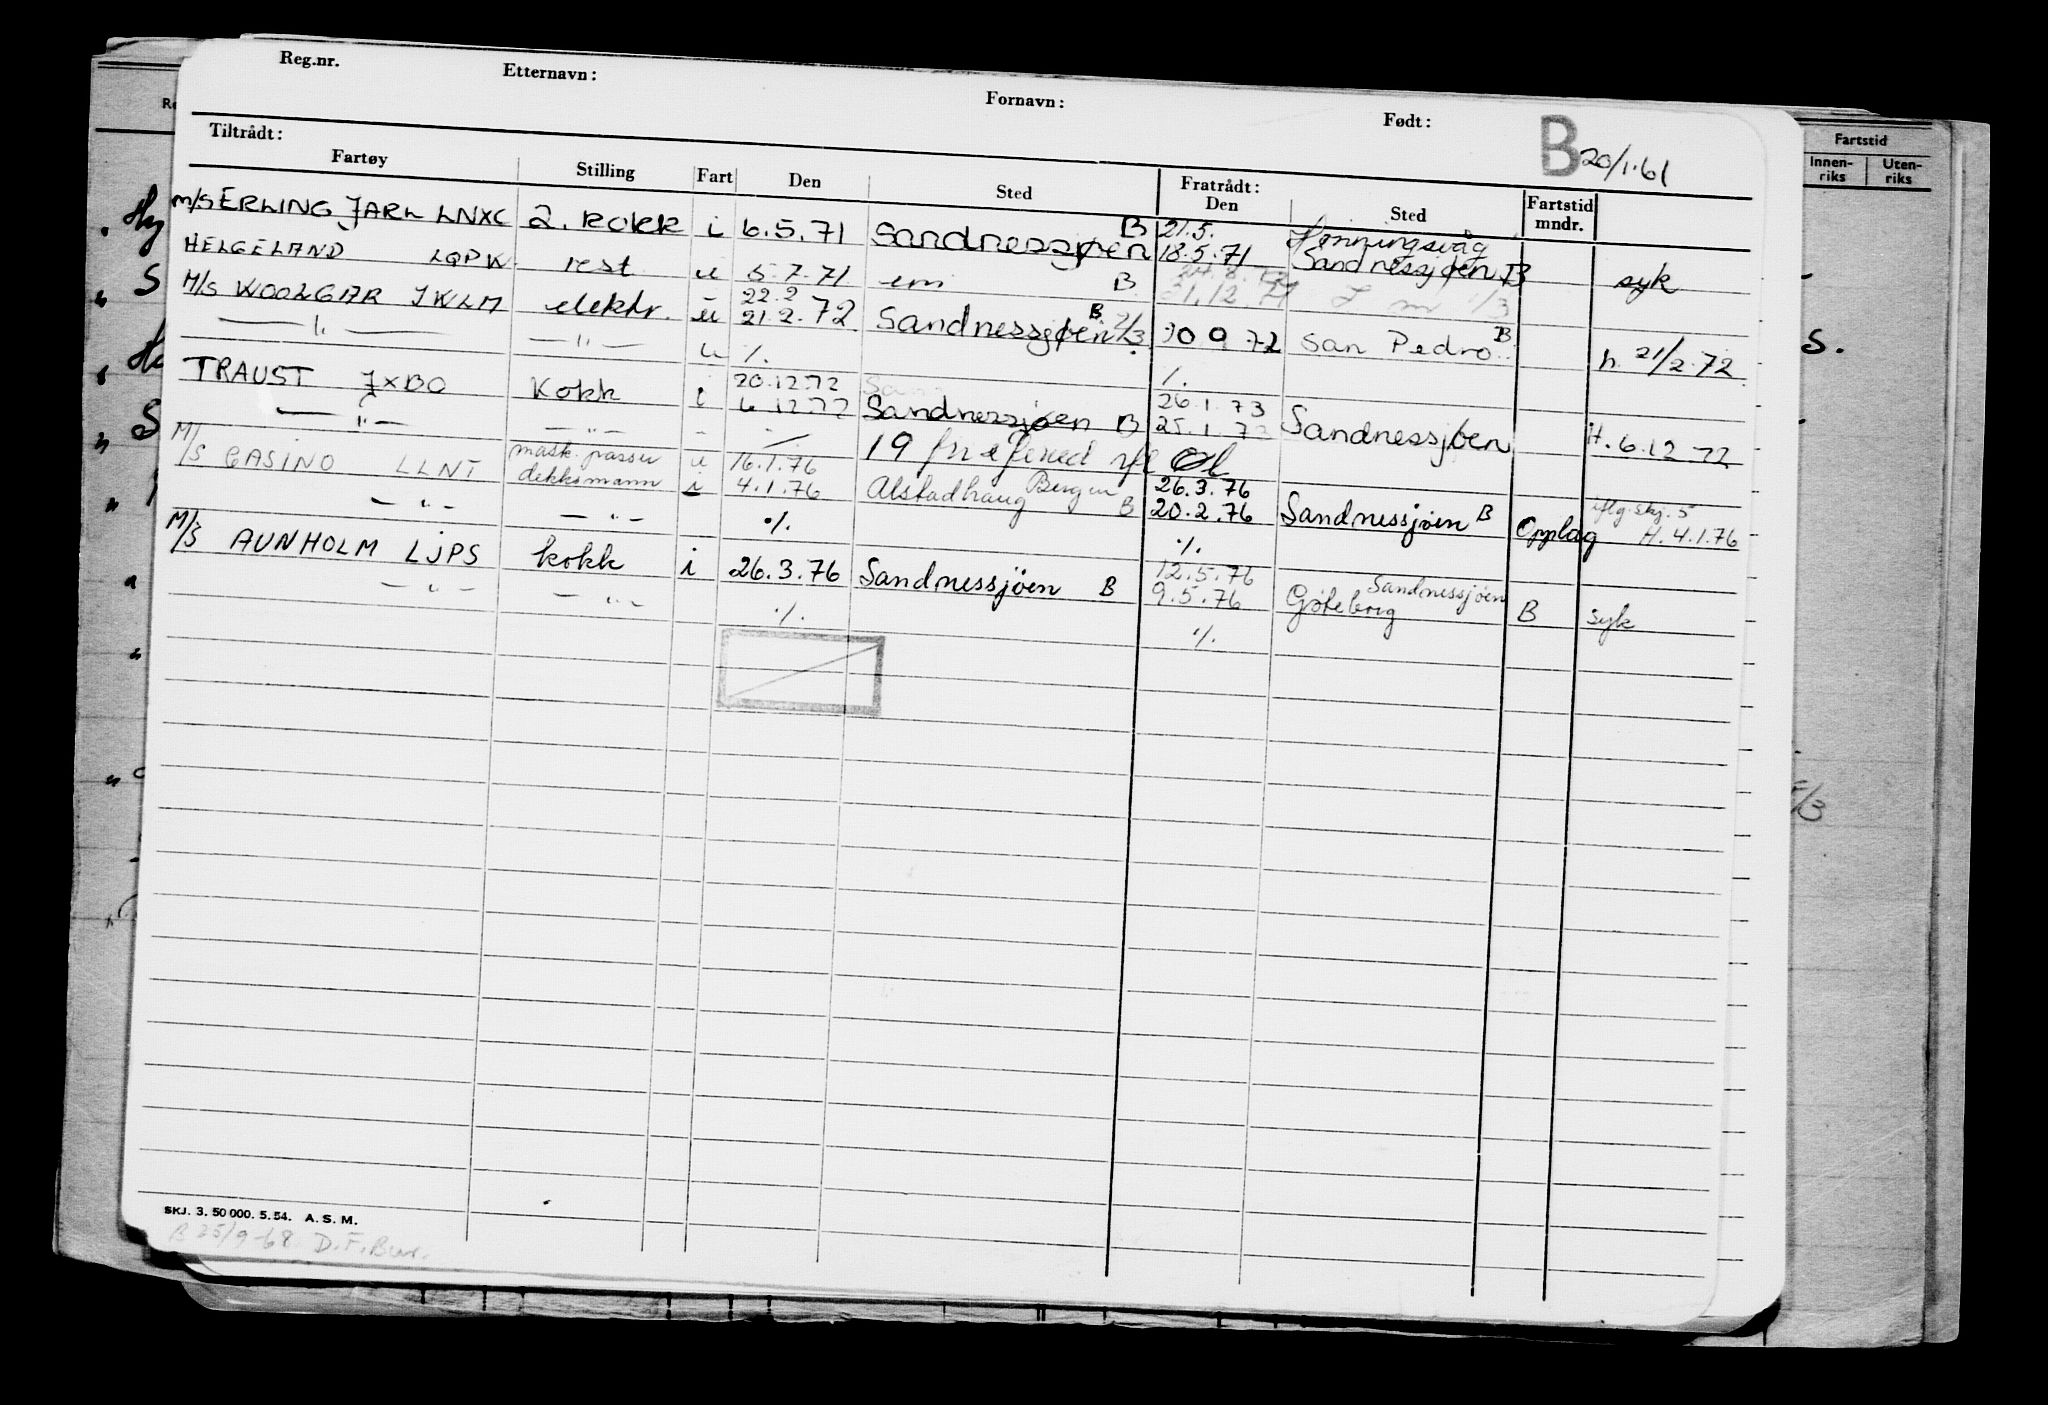 Reg.nr. Etternavn: Fornavn: Født:
B 20/1.61
Tiltrådt: Fratrådt:
Fartøy Stilling Fart Den Sted Den Sted Fartstid mndr.
Fartstid
Innenriks Utenriks
M/S ERLING JARL LNXC 2. KOKK i 6.5.71 Sandnessjøen B 21.5. 18.5.71 Honningsvåg Sandnessjøen B syk
HELGELAND LQPW rest u 5.7.71 em B 31.12.71
M/S WOOLGAR JWLM elektr. u 22.2 21.2.72 Sandnessjøen B 2/3 30 9 72 San Pedro B h. 21/2.72
— " — — " — u %. %.
TRAUST JXBO Kokk i 20.12.72 6.12.72 Sandnessjøen B 26.1.73 25.1.73 Sandnessjøen H. 6.12.72
— " — — " — -
M/S CASINO LLNT mask.passer dekksmann u i 16.1.76 4.1.76 Alstadhaug Bergen B 26.3.76 20.2.76 Sandnessjøen B Opplag iflg. skj. 5 H. 4.1.76
— " — — " — %. %.
M/S AUNHOLM LJPS kokk i 26.3.76 Sandnessjöen B 12.5.76 9.5.76 Sandnessjöen Göteborg B syk
— " — — " — %. %.
SKJ. 3. 50 000. 5. 54. A. S. M.
B 25/9-68. D.F.Bur.